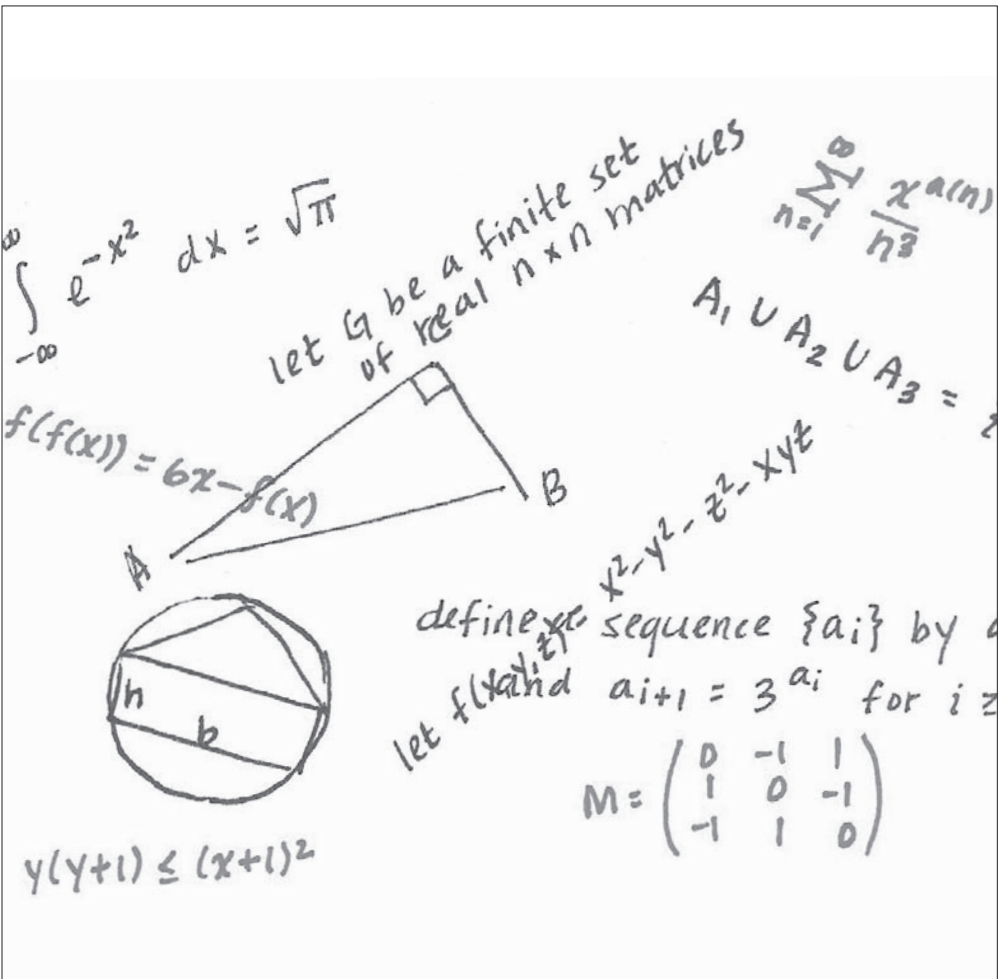 ∞
∫ e^{-x^2} dx = √π
-∞
let G be a finite set
of real n×n matrices
∞
Σ x^{a(n)}
n=1 n^3
A_1 ∪ A_2 ∪ A_3 =
f(f(x)) = 6x - f(x)
C
A
B
x^2 - y^2 - z^2 - xyz
let f(x,y,z)
define sequence {a_i} by
and a_{i+1} = 3^{a_i} for i
h
b
M = ( 0 -1 1
1 0 -1
-1 1 0 )
y(y+1) ≤ (x+1)^2